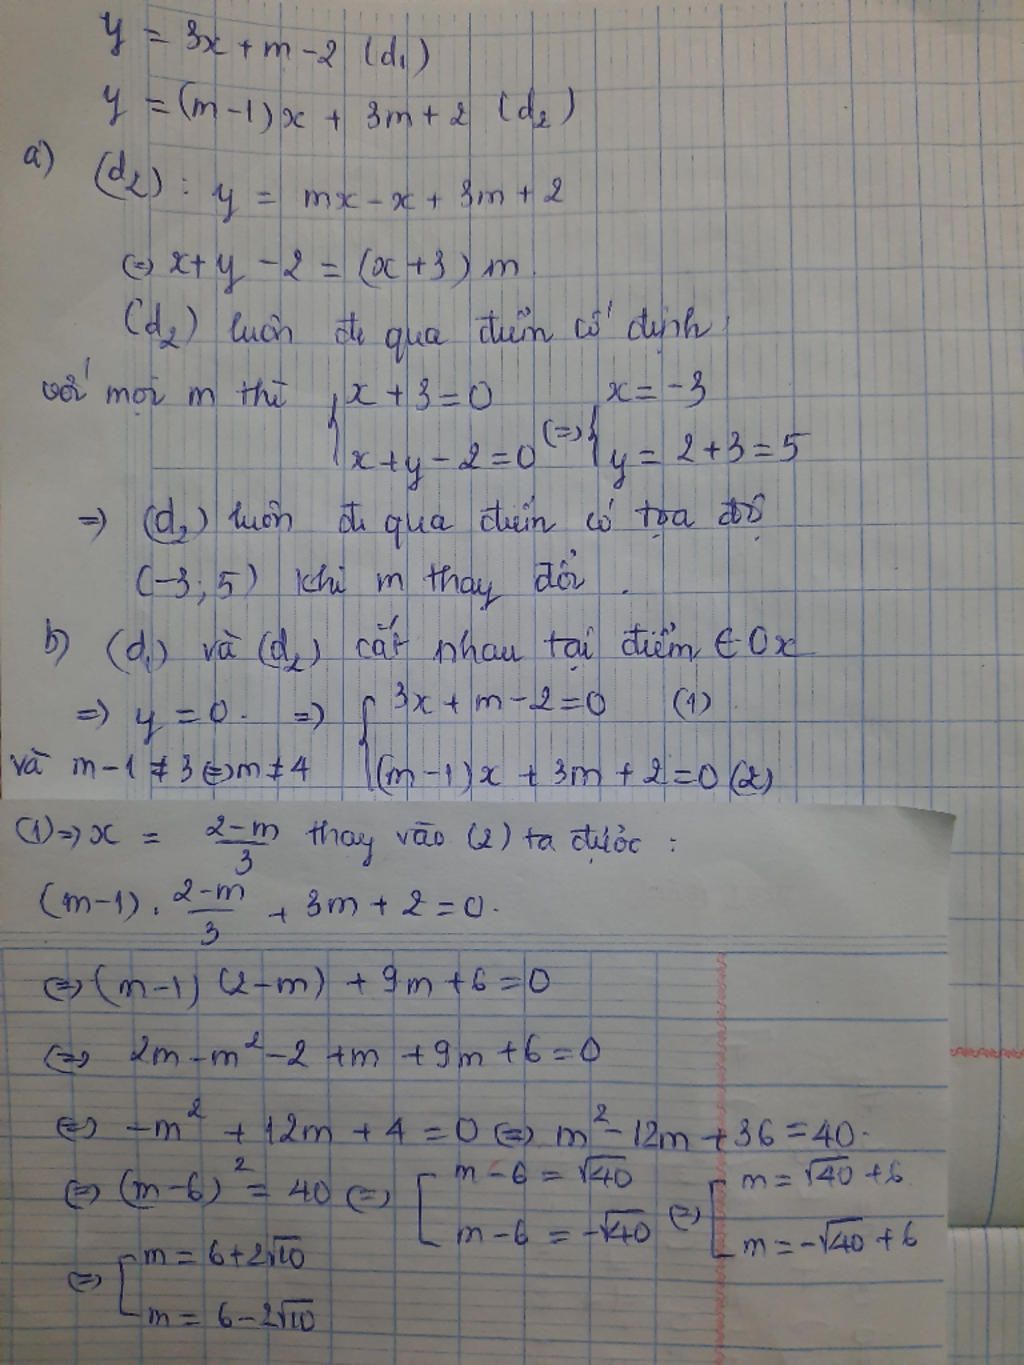 y = 3x + m - 2 (d₁)
y = (m-1)x + 3m + 2 (d₂)
a) (d₂) : y = mx - x + 3m + 2
(=) x + y - 2 = (x+3) m
(d₂) luôn đi qua điểm cố định
với mọi m thì { x + 3 = 0 ; x + y - 2 = 0 (=) { x = -3 ; y = 2 + 3 = 5
=> (d₂) luôn đi qua điểm có tọa độ
(-3; 5) khi m thay đổi .
b) (d₁) và (d₂) cắt nhau tại điểm ∈ Ox
=> y = 0. => { 3x + m - 2 = 0 (1)
và m - 1 ≠ 3 (=) m ≠ 4 (m-1)x + 3m + 2 = 0 (2)
(1) => x = (2-m)/3 thay vào (2) ta được :
(m-1) . (2-m)/3 + 3m + 2 = 0.
(=) (m-1) (2-m) + 9m + 6 = 0
(=) 2m - m² - 2 + m + 9m + 6 = 0
(=) -m² + 12m + 4 = 0 (=) m² - 12m + 36 = 40.
(=) (m-6)² = 40 (=) [ m - 6 = √40 ; m - 6 = -√40 (=) [ m = √40 + 6 ; m = -√40 + 6
(=) [ m = 6 + 2√10
m = 6 - 2√10